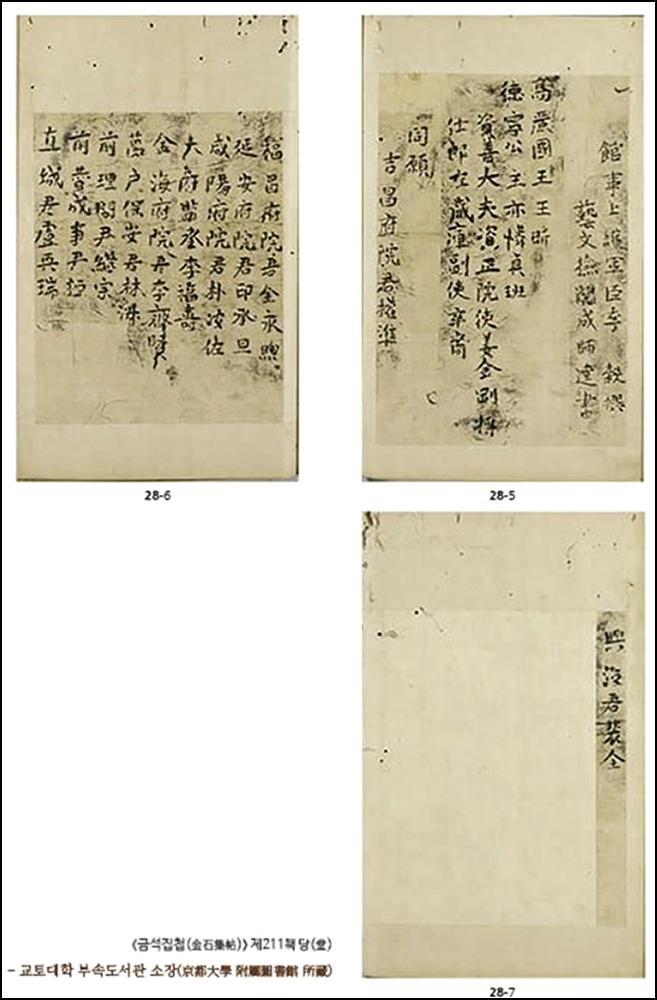 館事上護軍臣李 穀撰
藝文檢閱成師達書
高麗國王王昕
德寧公主亦憐眞班
資善大夫資正院使姜金剛 將
仕郎左藏庫副使辛裔
同願
吉昌府院君權準
28-5
福昌府院君金永煦
延安府院君印承旦
咸陽府院君朴忠佐
大府監丞李福壽
金海府院君李齊賢
萬戶保安君林洙
前理問尹繼宗
前成事尹桓
直城君盧英瑞
28-6
興海君裵全
28-7
《금석집첩(金石集帖)》 제211책 당(堂)
- 교토대학 부속도서관 소장(京都大學 附屬圖書館 所藏)